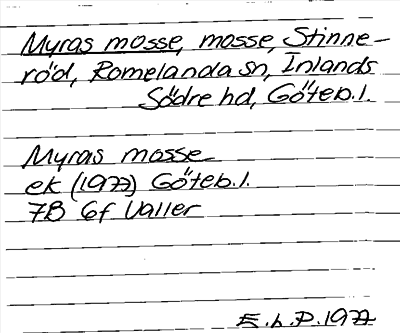 Myras mosse, mosse, Stinne-
röd, Romelanda sn, Inlands
Södre hd, Göteb.l.
Myras mosse
ek (1977) Göteb.l.
7B 6f Valler
E.h.P. 1977